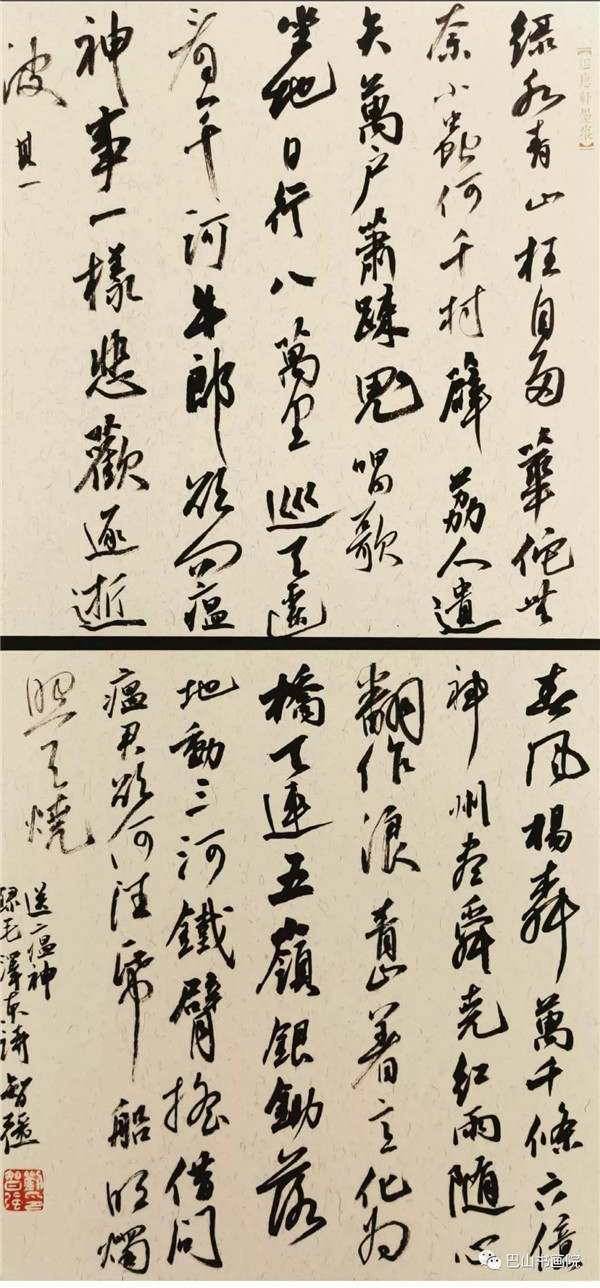 綠水青山枉自多華佗無
奈小蟲何千村薜荔人遺
矢萬戶蕭踈鬼唱歌
坐地日行八萬里巡天遙
看一千河牛郎欲問瘟
神事一樣悲歡逐逝
波其一
春風楊柳萬千條六億
神州盡舜堯紅雨隨心
翻作浪青山着意化為
橋天連五嶺銀鋤落
地動三河鐵臂搖借問
瘟君欲何往紙船明燭
照天燒
送二瘟神
錄毛澤東詩智強
巴山书画院